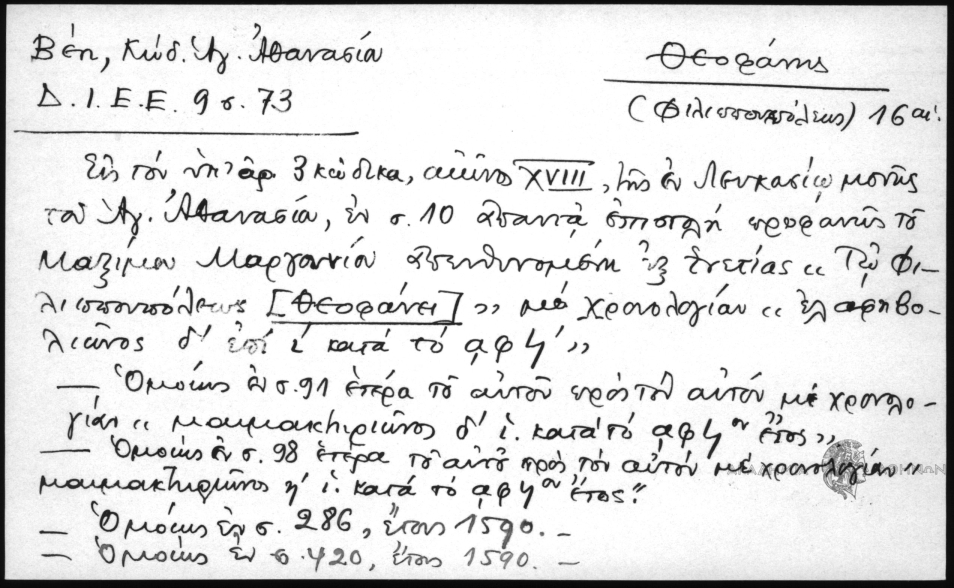 Βέη, Κώδ. Ἁγ. Ἀθανασία
Δ. Ι. Ε. Ε. 9 σ. 73
Θεοφάνης
(Φιλιππουπόλεως) 16 αἰ.
Εἰς τόν ὑπ' ἀρ. 3 κώδικα, αἰῶνος XVIII, τῆς ἐν Λευκασίῳ μονῆς
τοῦ Ἁγ. Ἀθανασία, ἐν σ. 10 ἀπαντᾷ ἐπιστολή προφανῶς τοῦ
Μαξίμου Μαργουνίου ἀπευθυνομένη ἐξ Ἐνετίας « Τῷ Φι-
λιππουπόλεως [Θεοφάνει] » μέ χρονολογίαν « ἐλαφηβο-
λιῶνος δ' ἐπί ί κατά τό ͵αφϟ' »
— Ὁμοίως ἐν σ. 91 ἑτέρα τοῦ αὐτοῦ πρός τόν αὐτόν μέ χρονολο-
γίαν « μαιμακτηριῶνος δ' ί. κατά τό ͵αφϟον ἔτος »
— Ὁμοίως ἐν σ. 98 ἑτέρα τοῦ αὐτοῦ πρός τόν αὐτόν μέ χρονολογίαν «
μαιμακτηριῶνος η' ί. κατά τό ͵αφϟον ἔτος."
— Ὁμοίως ἐν σ. 286, ἔτους 1590. –
— Ὁμοίως ἐν σ. 420, ἔτους 1590. –